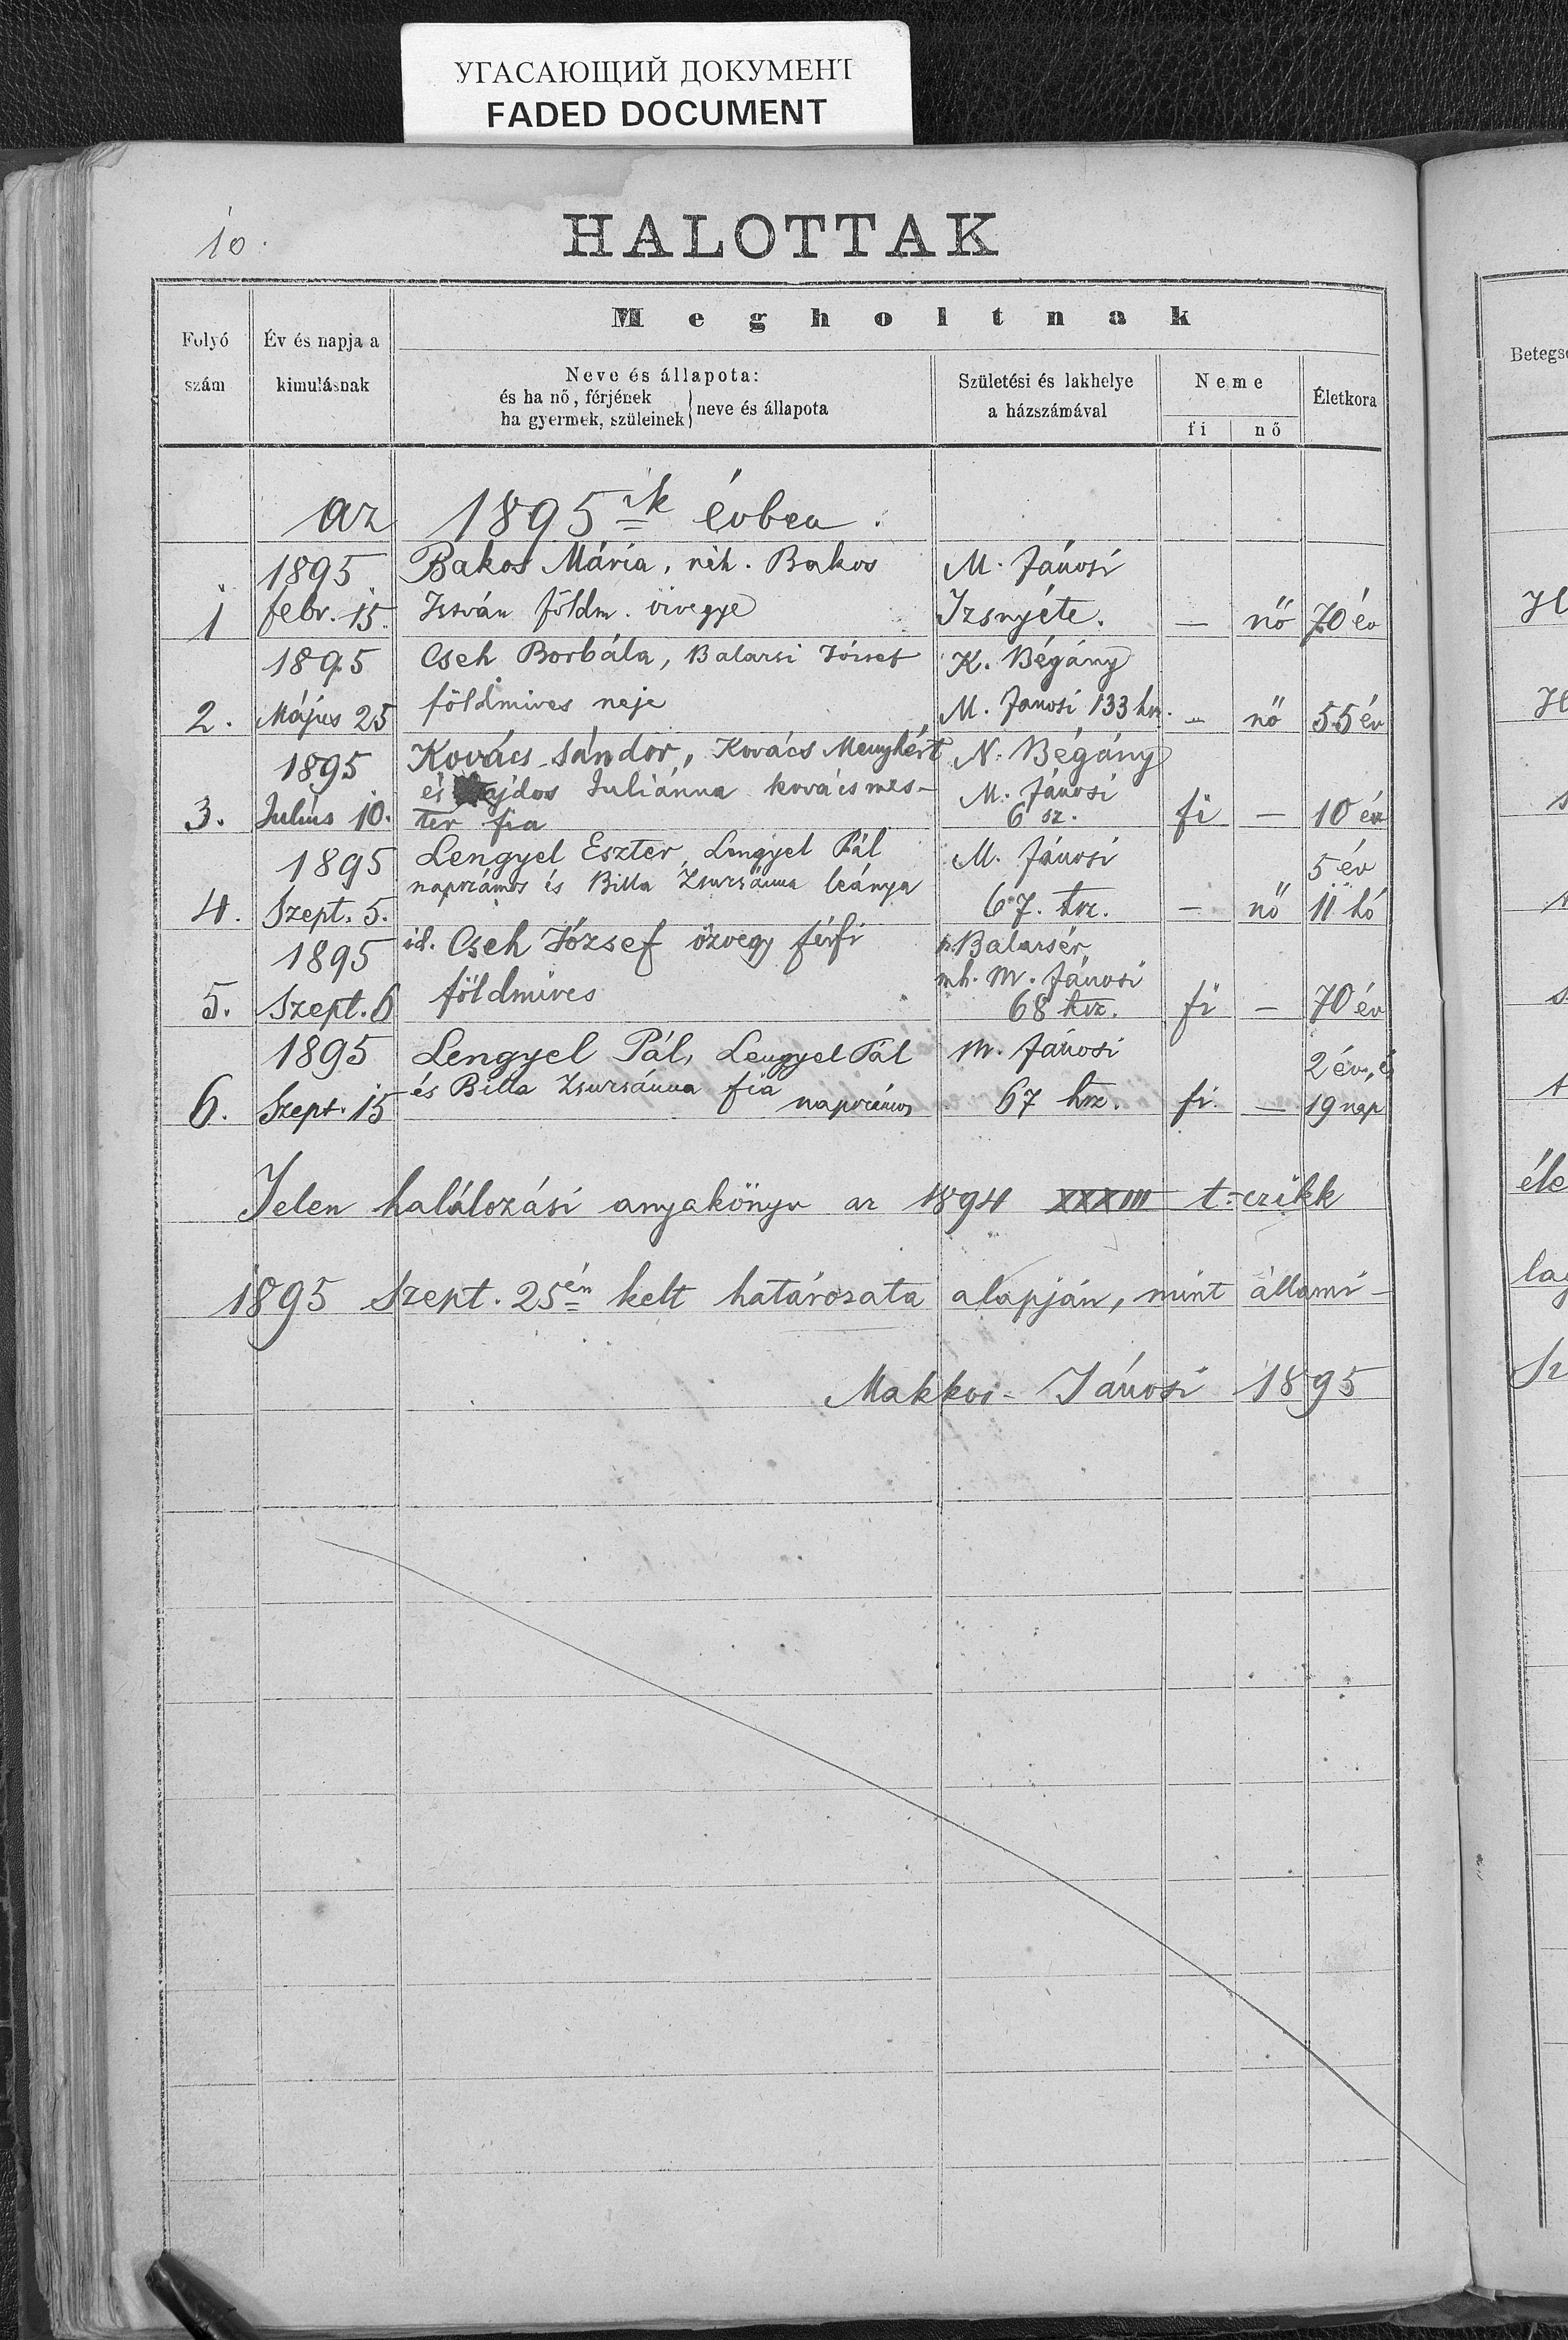 УГАСАЮЩИЙ ДОКУМЕНТ
FADED DOCUMENT
10.
HALOTTAK
Folyó szám
Év és napja a kimulásnak
Megholtnak
Neve és állapota:
és ha nő, férjének
ha gyermek, szüleinek } neve és állapota
Születési és lakhelye
a házszámával
Neme
fi nő
Életkora
Betegs
az 1895ik évben.
1895 Bakos Mária, néh. Bakos M. Jánosi
1 febr. 15. István földm. özvegye Izsnyéte. — nő 70 év
1895 Cseh Borbála, Balazsi József K. Bégány
2. Május 25 földmives neje M. Janosi 133 hsz. — nő 55 év
1895 Kovács Sándor, Kovács Menyhért N. Bégány
és Hajdos Juliánna kovácsmes- M. Jánosi
3. Julius 10. ter fia 6 sz. fi — 10 év
1895 Lengyel Eszter, Lengyel Pál M. Jánosi 5 év
4. Szept. 5. napszámos és Billa Zsuzsánna leánya 67. hsz. — nő 11 hó
1895 id. Cseh József özvegy férfi Balazsér
mh. M. Jánosi
5. Szept. 6 földmives 68 hsz. fi — 70 év
1895 Lengyel Pál, Lengyel Pál M. Jánosi 2 év, é
6. Szept. 15 és Billa Zsuzsánna fia napszámos 67 hsz. fi. — 19 nap
Jelen halálozási anyakönyv az 1894 XXXIII t-czikk
éle
1895 Szept. 25én kelt határozata alapján, mint állami-
lag
Makkos-Jánosi 1895
Sz